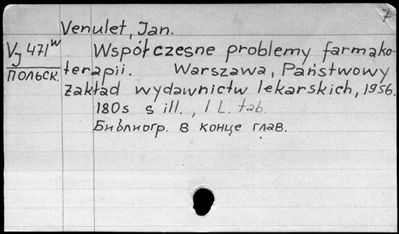 7
Venulet, Jan.
VJ 471w Współczesne problemy farmako-
ПОЛЬСК. terapii. Warszawa, Państwowy
Zakład wydawnictw lekarskich, 1956.
180s s ill., 1 L. tab.
Библиогр. в конце глав.